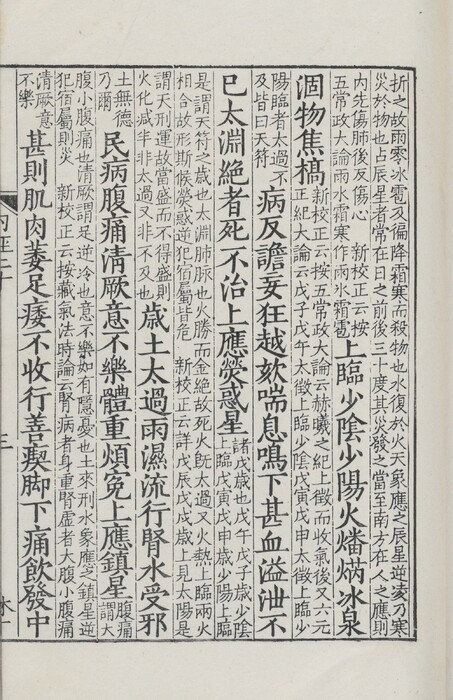 折之故雨零冰雹及徧降霜寒而殺物也水復於火天象應之辰星逆凌乃寒
災於物也占辰星者常在日之前後三十度其災發之當至南方在人之應則
内先傷肺後反傷心　新校正云按
五常政大論雨水霜寒作雨水霜雹
上臨少陰少陽火燔焫冰泉
涸物焦槁
新校正云按五常政大論云赫曦之紀上徵而收氣後又六元
正紀大論云戊子戊午太徵上臨少陰戊寅戊申太徵上臨少
陽臨者太過不
及皆曰天符
病反譫妄狂越欬喘息鳴下甚血溢泄不
已太淵絶者死不治上應熒惑星
諸戊歲也戊午戊子歲少陰
上臨戊寅戊申歲少陽上臨
是謂天符之歲也太淵肺脉也火勝而金絶故死火旣太過又火熱上臨兩火
相合故形斯候熒惑逆犯宿屬皆危　新校正云詳戊辰戊戌歲上見太陽是
謂天刑運故當盛而不得盛則
火化減半非太過又非不及也
歲土太過雨濕流行腎水受邪
土無德
乃爾
民病腹痛清厥意不樂體重煩冤上應鎮星
腹痛
謂大
腹小腹痛也清厥謂足逆冷也意不樂如有隱憂也土來刑水象應之鎮星逆
犯宿屬則災　新校正云按藏氣法時論云腎病者身重腎虛者大腹小腹痛
清厥意
不樂
甚則肌肉萎足痿不收行善瘈脚下痛飲發中
三